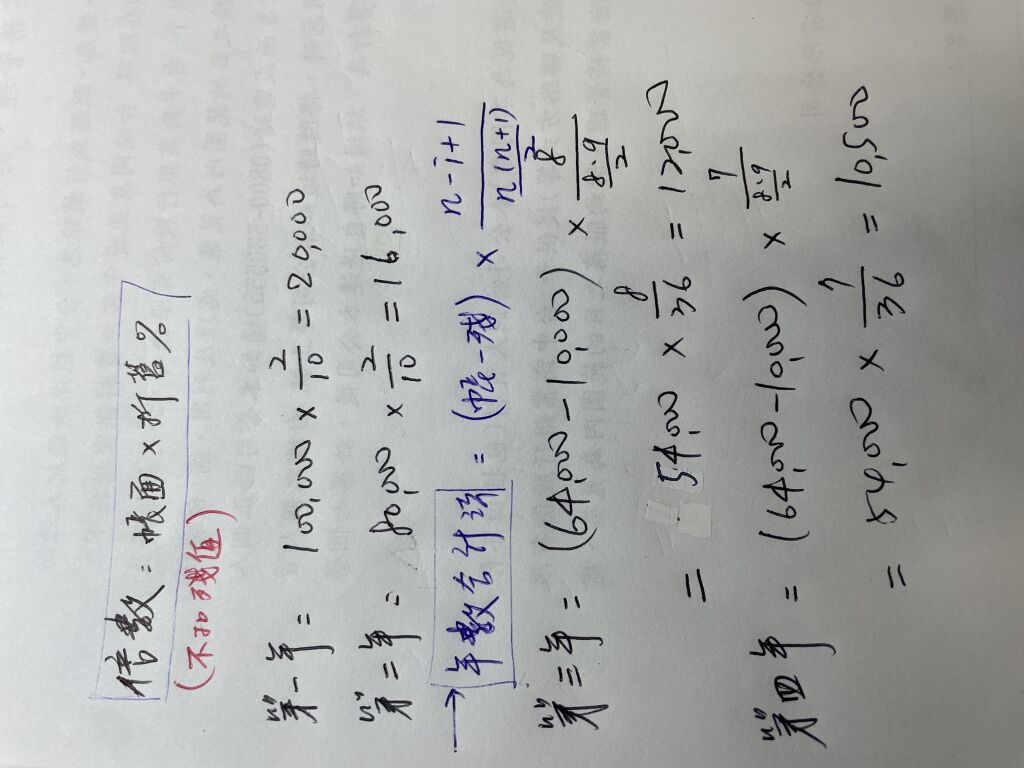 倍數=帳面×折舊%
(不扣殘值)
第一年= 100,000 × 2/10 = 20,000
第二年= 80,000 × 2/10 = 16,000
→ 年數合計法 = (帳-殘) × n-i+1 / n(n+1)/2
第三年= (64,000-10,000) × 8 / 8·9/2
= 54,000 × 8/36 = 12,000
第四年 = (64,000-10,000) × 7 / 8·9/2
= 54,000 × 7/36 = 10,500